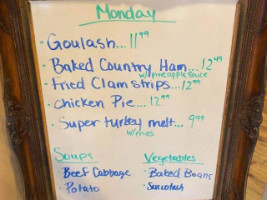 Monday
· Goulash... 11⁹⁹
· Baked Country Ham... 12⁴⁹
w/pineapple sauce
· Fried Clam strips... 12⁹⁹
· Chicken Pie... 12⁹⁹
· Super turkey melt... 9⁹⁹
w/fries
Soups Vegetables
· Beef Cabbage · Baked Beans
· Potato · Succotash